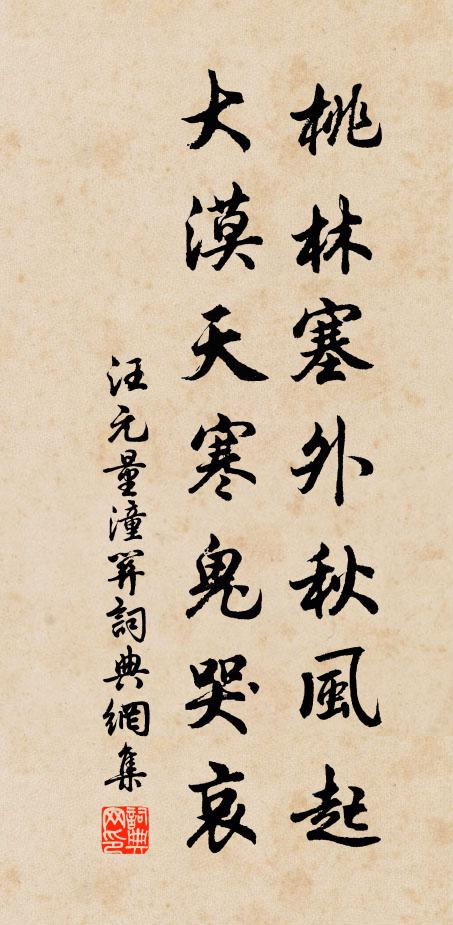 桃林塞外秋風起
大漠天寒鬼哭哀
汪元量潼關詞典網集
詞典网印